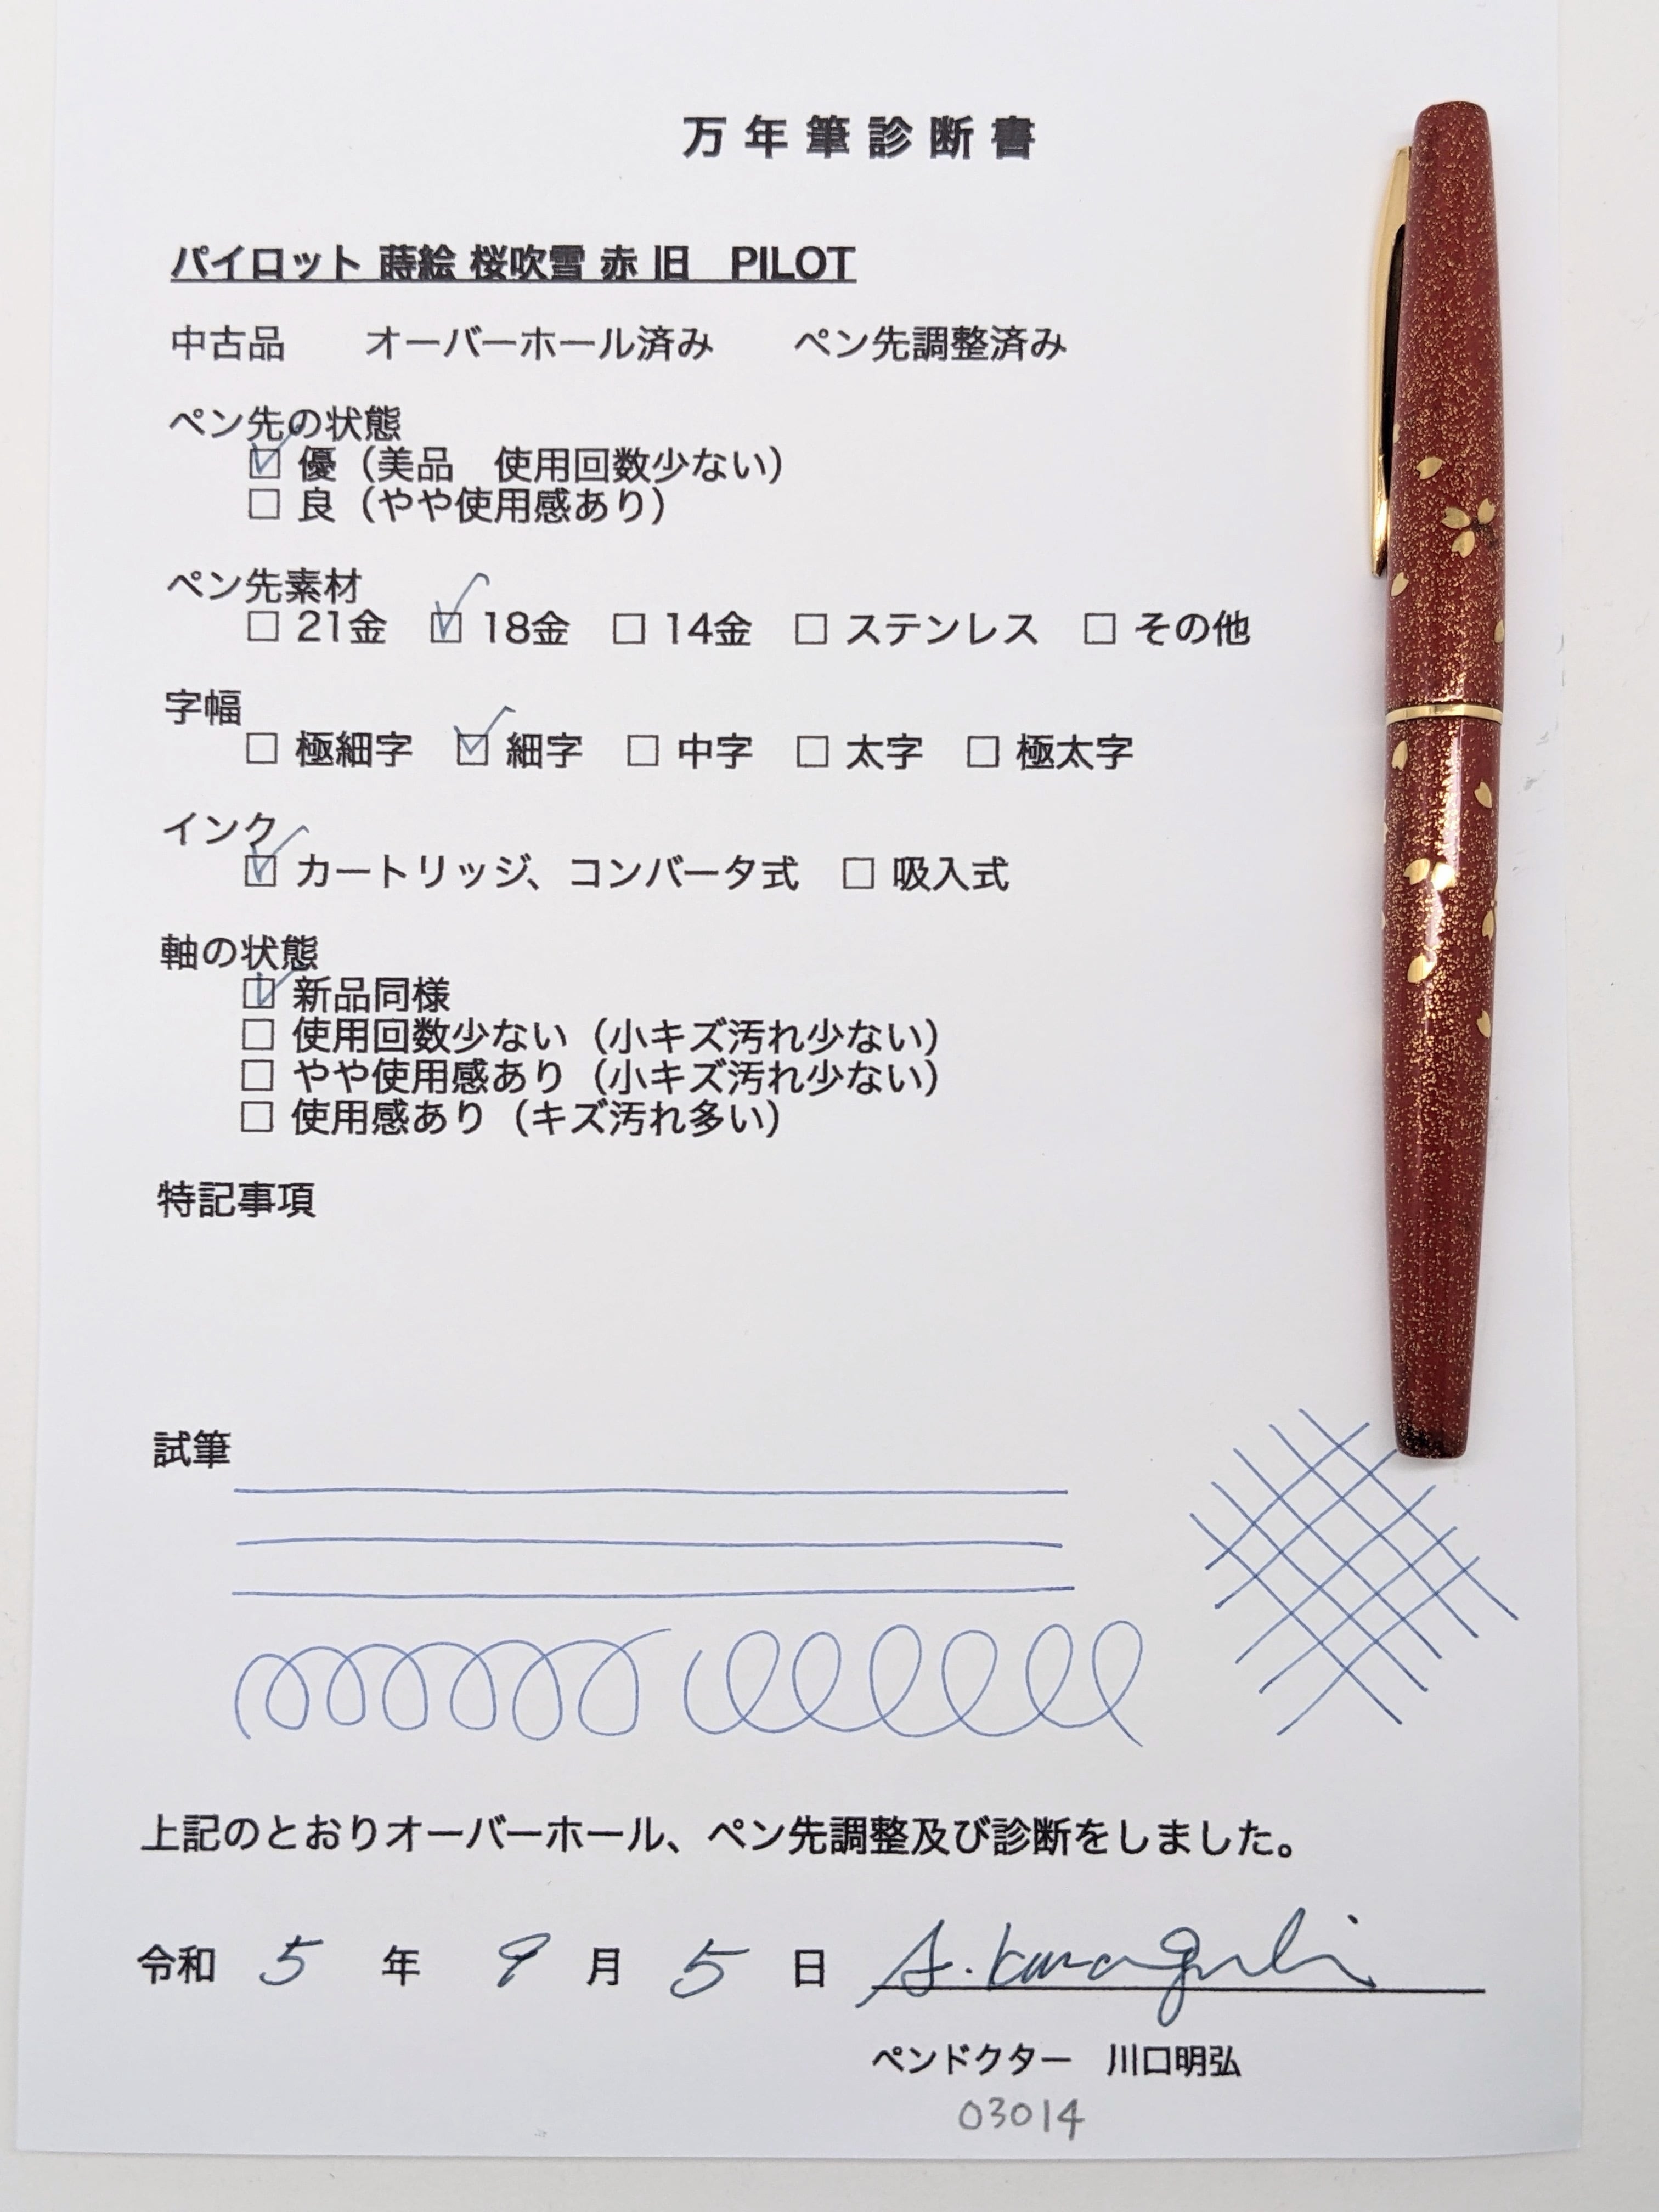 万年筆診断書
パイロット 蒔絵 桜吹雪 赤 旧　PILOT
中古品　　オーバーホール済み　　ペン先調整済み
ペン先の状態
☑ 優（美品　使用回数少ない）
□ 良（やや使用感あり）
ペン先素材
□ 21金　☑ 18金　□ 14金　□ ステンレス　□ その他
字幅
□ 極細字　☑ 細字　□ 中字　□ 太字　□ 極太字
インク
☑ カートリッジ、コンバータ式　□ 吸入式
軸の状態
☑ 新品同様
□ 使用回数少ない（小キズ汚れ少ない）
□ やや使用感あり（小キズ汚れ少ない）
□ 使用感あり（キズ汚れ多い）
特記事項
試筆
上記のとおりオーバーホール、ペン先調整及び診断をしました。
令和 5 年 9 月 5 日 A. Kawaguchi
ペンドクター　川口明弘
03014